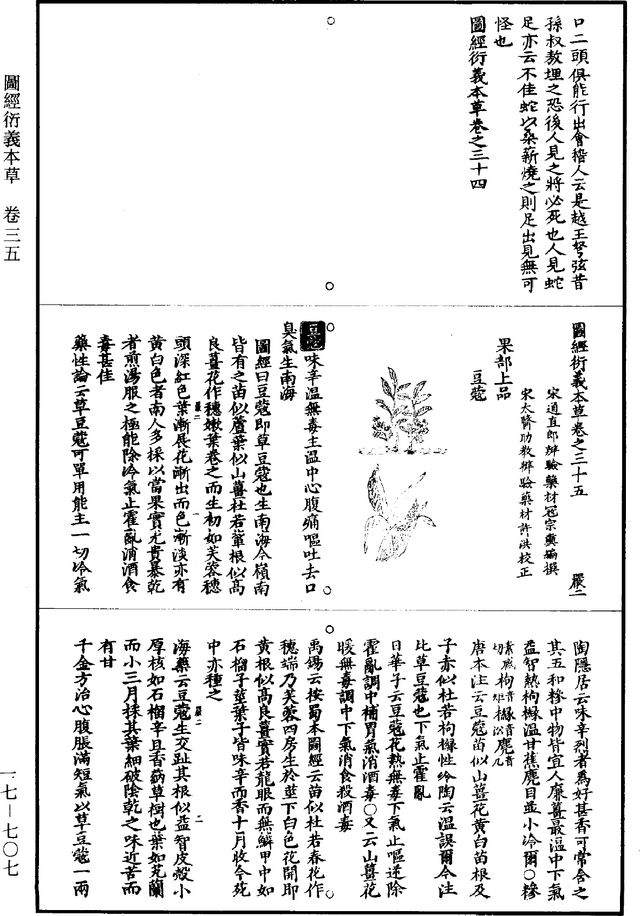 圖經衍義本草　卷三五
一七—七〇七
口二頭俱能行出會稽人云是越王弩弦昔
孫叔敖埋之恐後人見之將必死也人見蛇
足亦云不佳蛇以桑薪燒之則足出見無可
怪也
圖經衍義本草卷之三十四
圖經衍義本草卷之三十五　嚴二
宋通直郎辨驗藥材寇宗奭編撰
宋太醫助教辨驗藥材許洪校正
果部上品
豆蔻
豆蔻味辛溫無毒主溫中心腹痛嘔吐去口
臭氣生南海
圖經曰豆蔻即草豆蔻也生南海今嶺南
皆有之苗似蘆葉似山薑杜若輩根似高
良薑花作穗嫩葉卷之而生初如芙蓉穗
頭深紅色葉漸展花漸出而色漸淡亦有
黃白色者南人多採以當果實尤貴蓦乾
者煎湯服之極能除冷氣止霍亂消酒食
毒甚佳
藥性論云草豆蔻可單用能主一切冷氣
陶隱居云味辛烈者為好甚香可常含之
其五和糝中物皆宜人廉薑最溫中下氣
益智熱枸櫞溫甘蕉麂目並小冷爾○糝
素感切枸音矩櫞音沿麂音几
唐本注云豆蔻苗似山薑花黃白苗根及
子亦似杜若枸櫞性冷陶云溫誤爾今注
比草豆蔻也下氣止霍亂
日華子云豆蔻花熱無毒下氣止嘔逆除
霍亂調中補胃氣消酒毒○又云山薑花
暖無毒調中下氣消食殺酒毒
禹錫云按蜀本圖經云苗似杜若春花作
穗端乃芙蓉四房生於莖下白色花開即
黃根似高良薑實若龍眼而無鱗甲中如
石榴子莖葉子皆味辛而香十月收今苑
中亦種之
嚴二　二
海藥云豆蔻生交趾其根似益智皮殼小
厚核如石榴辛且香蒳草樹也葉如芄蘭
而小三月採其葉細破陰乾之味近苦而
有甘
千金方治心腹脹滿短氣以草豆蔻一兩